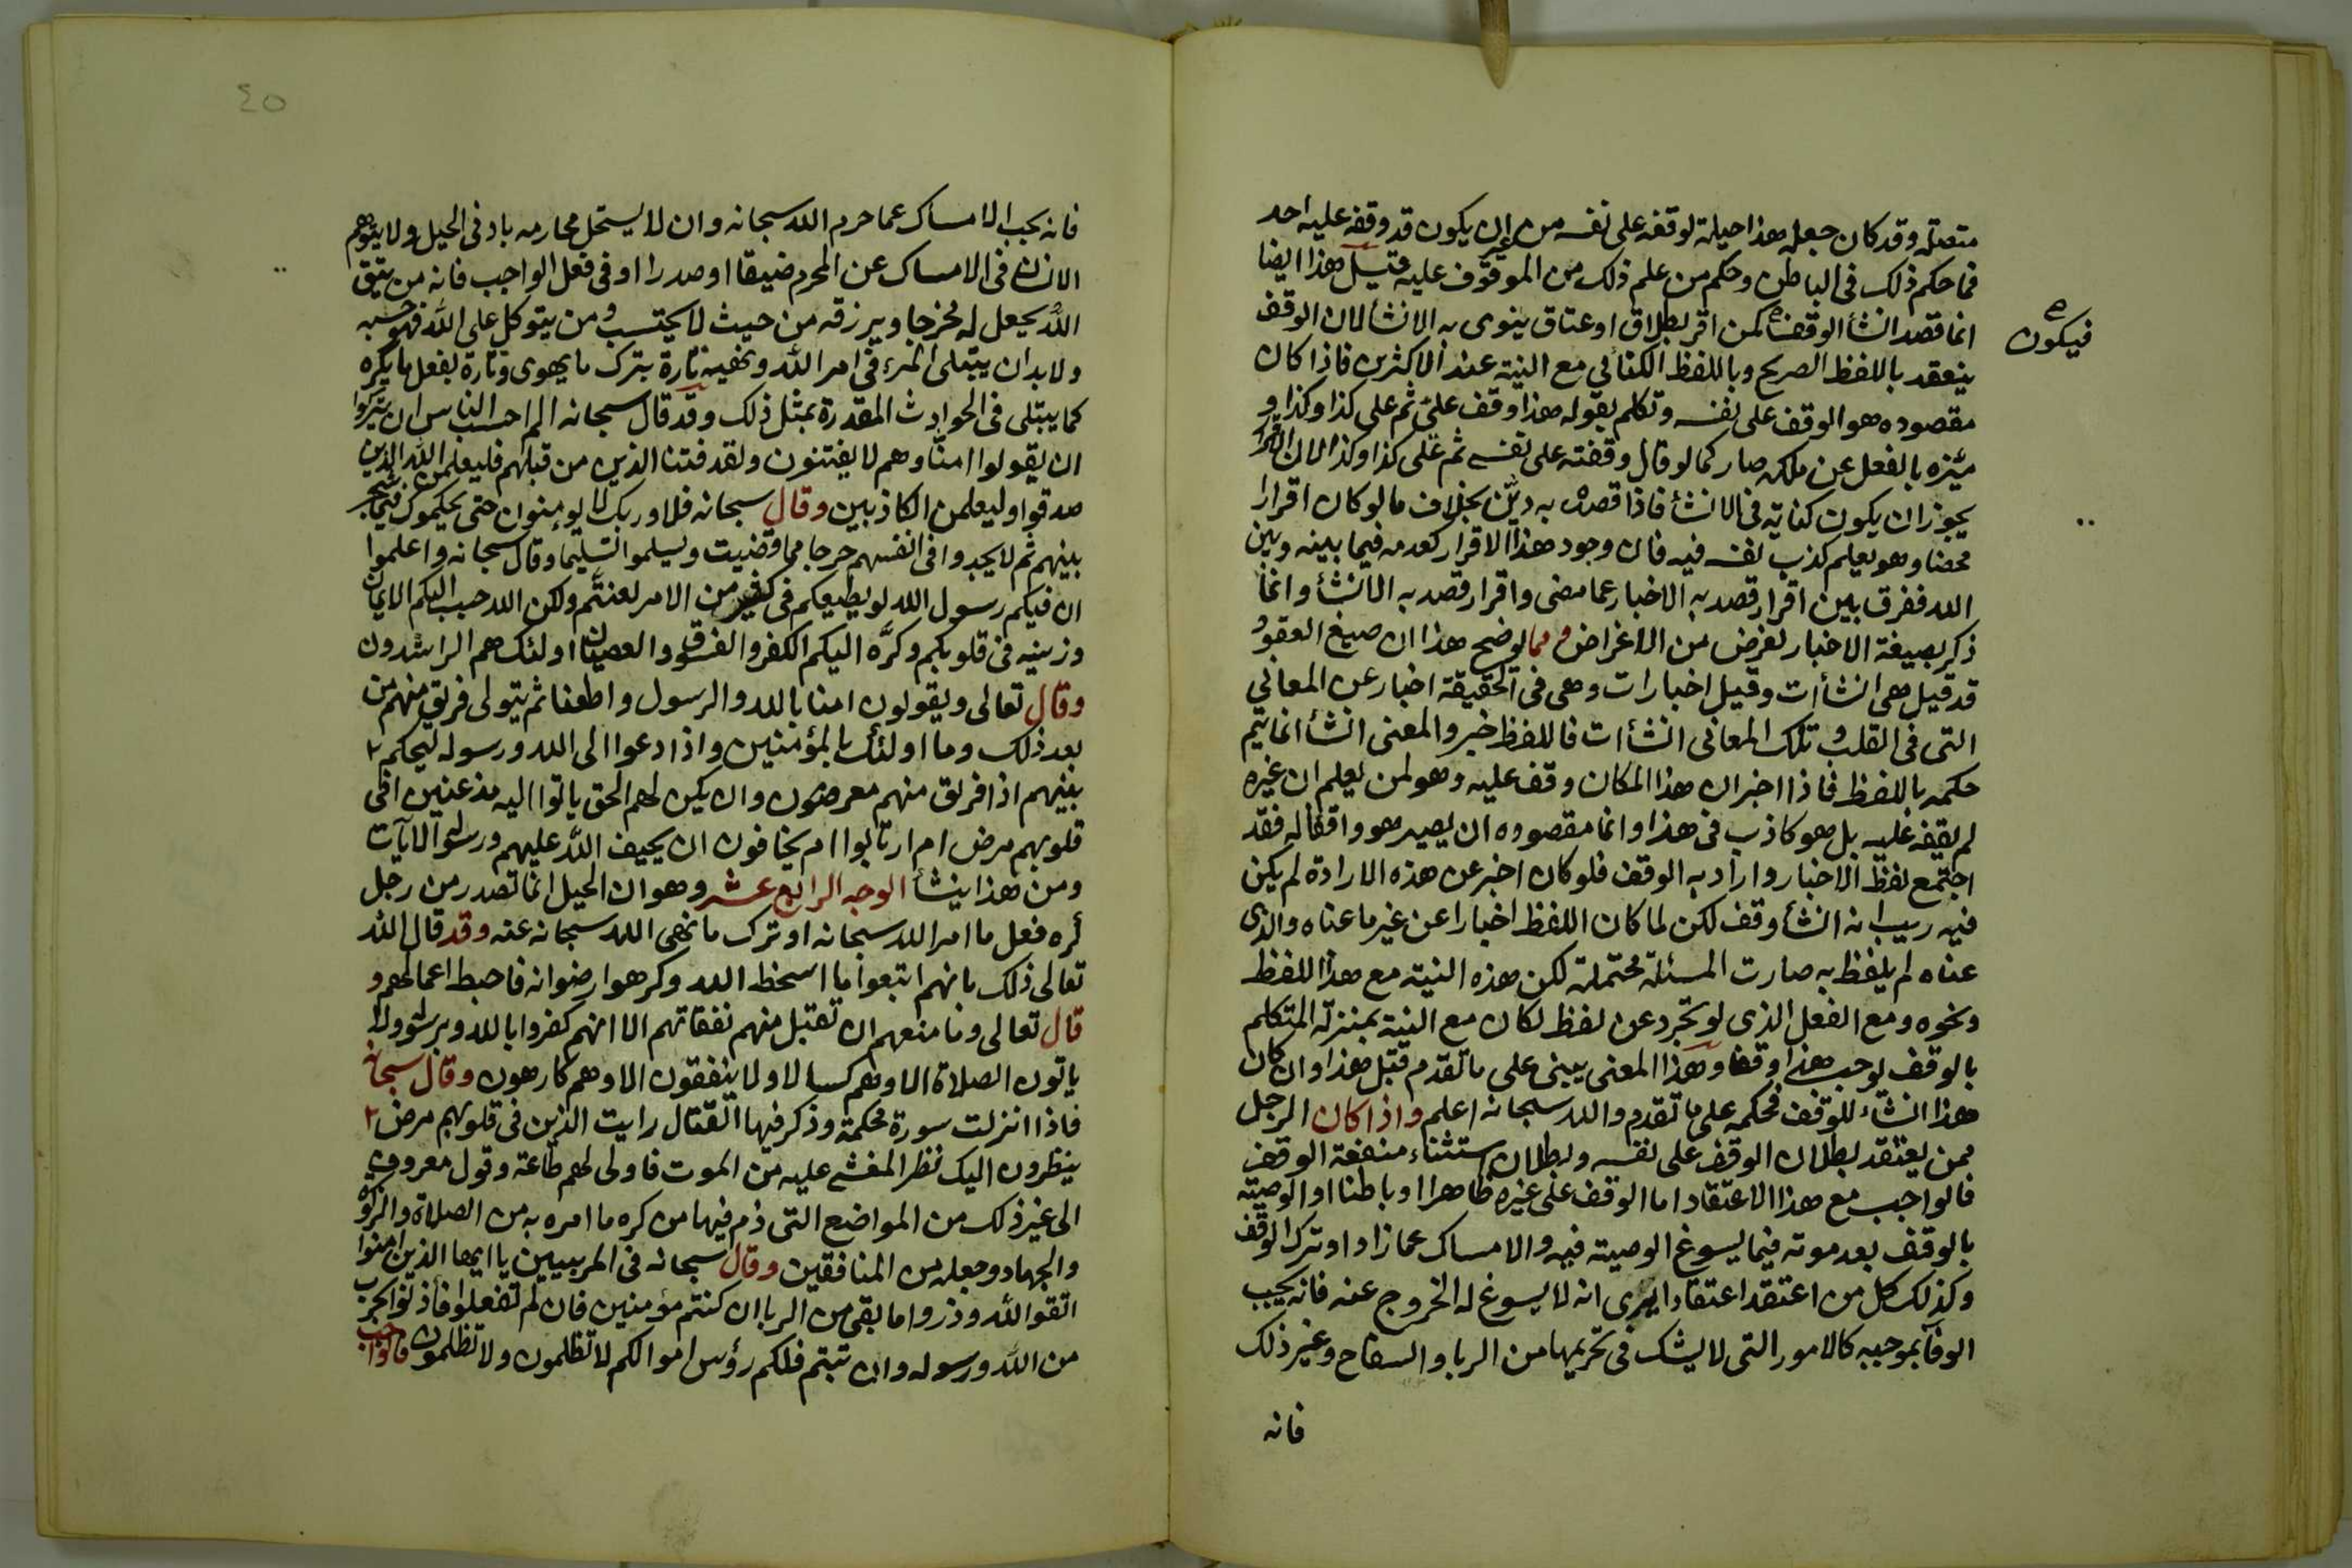 متصلة وقد كان جعله هذا حيلة لوقفه على نفسه من غير ان يكون قد وقفه عليه احد
فما حكم ذلك في الباطن وحكم من علم ذلك من الموقوف عليه قيل هذا ايضا
انما قصد انشأ الوقف كمن اقر بطلاق او عتاق ينوى به الانشأ لان الوقف
فيكون
ينعقد باللفظ الصريح وباللفظ الكنائي مع النية عند الاكثرين فاذا كان
مقصوده هو الوقف على نفسه وتكلم بقوله هذا وقف علىّ ثم على كذا وكذا و
ميّزه بالفعل عن ملكه صار كما لو قال وقفته على نفسه ثم على كذا وكذا لان الاقرار
يجوز ان يكون كناية في الانشأ فاذا قصده به ديّن بخلاف ما لو كان اقرارا
محضا وهو يعلم كذب نفسه فيه فان وجود هذا الاقرار كعدمه فيما بينه وبين
الله ففرق بين اقرار قصد به الاخبار عما مضى واقرار قصد به الانشأ وانما
ذكر بصيغة الاخبار لغرض من الاغراض ومما يوضح هذا ان صيغ العقود
قد قيل هى انشأت وقيل اخبارات وهى في الحقيقة اخبار عن المعاني
التى في القلب وتلك المعاني انشأات فاللفظ خبر والمعنى انشأ انما يتم
حكمه باللفظ فاذا اخبر ان هذا المكان وقف عليه وهو لمن يعلم ان غيره
لم يقفه عليه بل هو كاذب في هذا وانما مقصوده ان يصير هو واقفا له فقد
اجتمع لفظ الاخبار وارادبه الوقف فلو كان اخبر عن هذه الارادة لم يكن
فيه ريب انه انشأ وقف لكن لما كان اللفظ اخبارا عن غير ما عناه والذى
عناه لم يلفظ به صارت المسئلة محتملة لكن هذه النية مع هذا اللفظ
ونحوه ومع الفعل الذى لو تجرد عن لفظ لكان مع النية بمنزلة المتكلم
بالوقف يوجب هذا وقفا وهذا المعنى يبنى على ما تقدم قبل هذا وان كان
هذا انشاء للوقف فحكمه على ما تقدم والله سبحانه اعلم واذا كان الرجل
ممن يعتقد بطلان الوقف على نفسه وبطلان استثناء منفعة الوقف
فالواجب مع هذا الاعتقاد اما الوقف على غيره ظاهرا وباطنا او الوصية
بالوقف بعد موته فيما يسوغ الوصية فيه والامساك عما زاد او ترك الوقف
وكذلك كل من اعتقد اعتقادا يرى انه لا يسوغ له الخروج عنه فانه يجب
الوفآ بموجبه كالامور التى لا يشك في تحريمها من الربا والسفاح وغير ذلك
فانه
٤٥
فانه يجب الامساك عما حرم الله سبحانه وان لا يستحل محارمه بادنى الحيل ولا يتوهم
الانسان في الامساك عن المحرم ضيقا او صدرا او في فعل الواجب فانه من يتق
الله يجعل له مخرجا ويرزقه من حيث لا يحتسب ومن يتوكل على الله فهو حسبه
ولا بد ان يبتلى المرء في امر الله ونهيه تارة بترك ما يهوى وتارة بفعل ما يكره
كما يبتلى في الحوادث المقدرة بمثل ذلك وقد قال سبحانه الم احسب الناس ان يتركوا
ان يقولوا امنّا وهم لا يفتنون ولقد فتنا الذين من قبلهم فليعلمن الله الذين
صدقوا وليعلمن الكاذبين وقال سبحانه فلا وربك لا يومنون حتى يحكموك فيما شجر
بينهم ثم لا يجدوا في انفسهم حرجا مما قضيت ويسلموا تسليما وقال سبحانه واعلموا
ان فيكم رسول الله لو يطيعكم في كثير من الامر لعنتّم ولكن الله حبب اليكم الايمان
وزينه في قلوبكم وكرّه اليكم الكفر والفسوق والعصيان اولئك هم الراشدون
وقال تعالى ويقولون امنا بالله والرسول واطعنا ثم يتولى فريق منهم من
بعد ذلك وما اولئك بالمؤمنين واذا دعوا الى الله ورسوله ليحكم ٢
بينهم اذا فريق منهم معرضون وان يكن لهم الحق ياتوا اليه مذعنين افى
قلوبهم مرض ام ارتابوا ام يخافون ان يحيف الله عليهم ورسوله الايات
ومن هذا ينشأ الوجه الرابع عشر وهو ان الحيل انما تصدر من رجل
كره فعل ما امر الله سبحانه او ترك ما نهى الله سبحانه عنه وقد قال الله
تعالى ذلك بانهم اتبعوا ما اسخط الله وكرهوا رضوانه فاحبط اعمالهم و
قال تعالى وما منعهم ان تقبل منهم نفقاتهم الا انهم كفروا بالله وبرسوله ولا
ياتون الصلاة الا وهم كسالا ولا ينفقون الا وهم كارهون وقال سبحانه
فاذا انزلت سورة محكمة وذكر فيها القتال رايت الذين في قلوبهم مرض ٢
ينظرون اليك نظر المغشي عليه من الموت فاولى لهم طاعة وقول معروف
الى غير ذلك من المواضع التى ذم فيها من كره ما امره به من الصلاة والزكوة
والجهاد وجعله من المنافقين وقال سبحانه في المربيين يا ايها الذين امنوا
اتقوا الله وذروا ما بقى من الربا ان كنتم مؤمنين فان لم تفعلوا فأذنوا بحرب
من الله ورسوله وان تبتم فلكم رؤس اموالكم لا تظلمون ولا تظلمون فاوجب